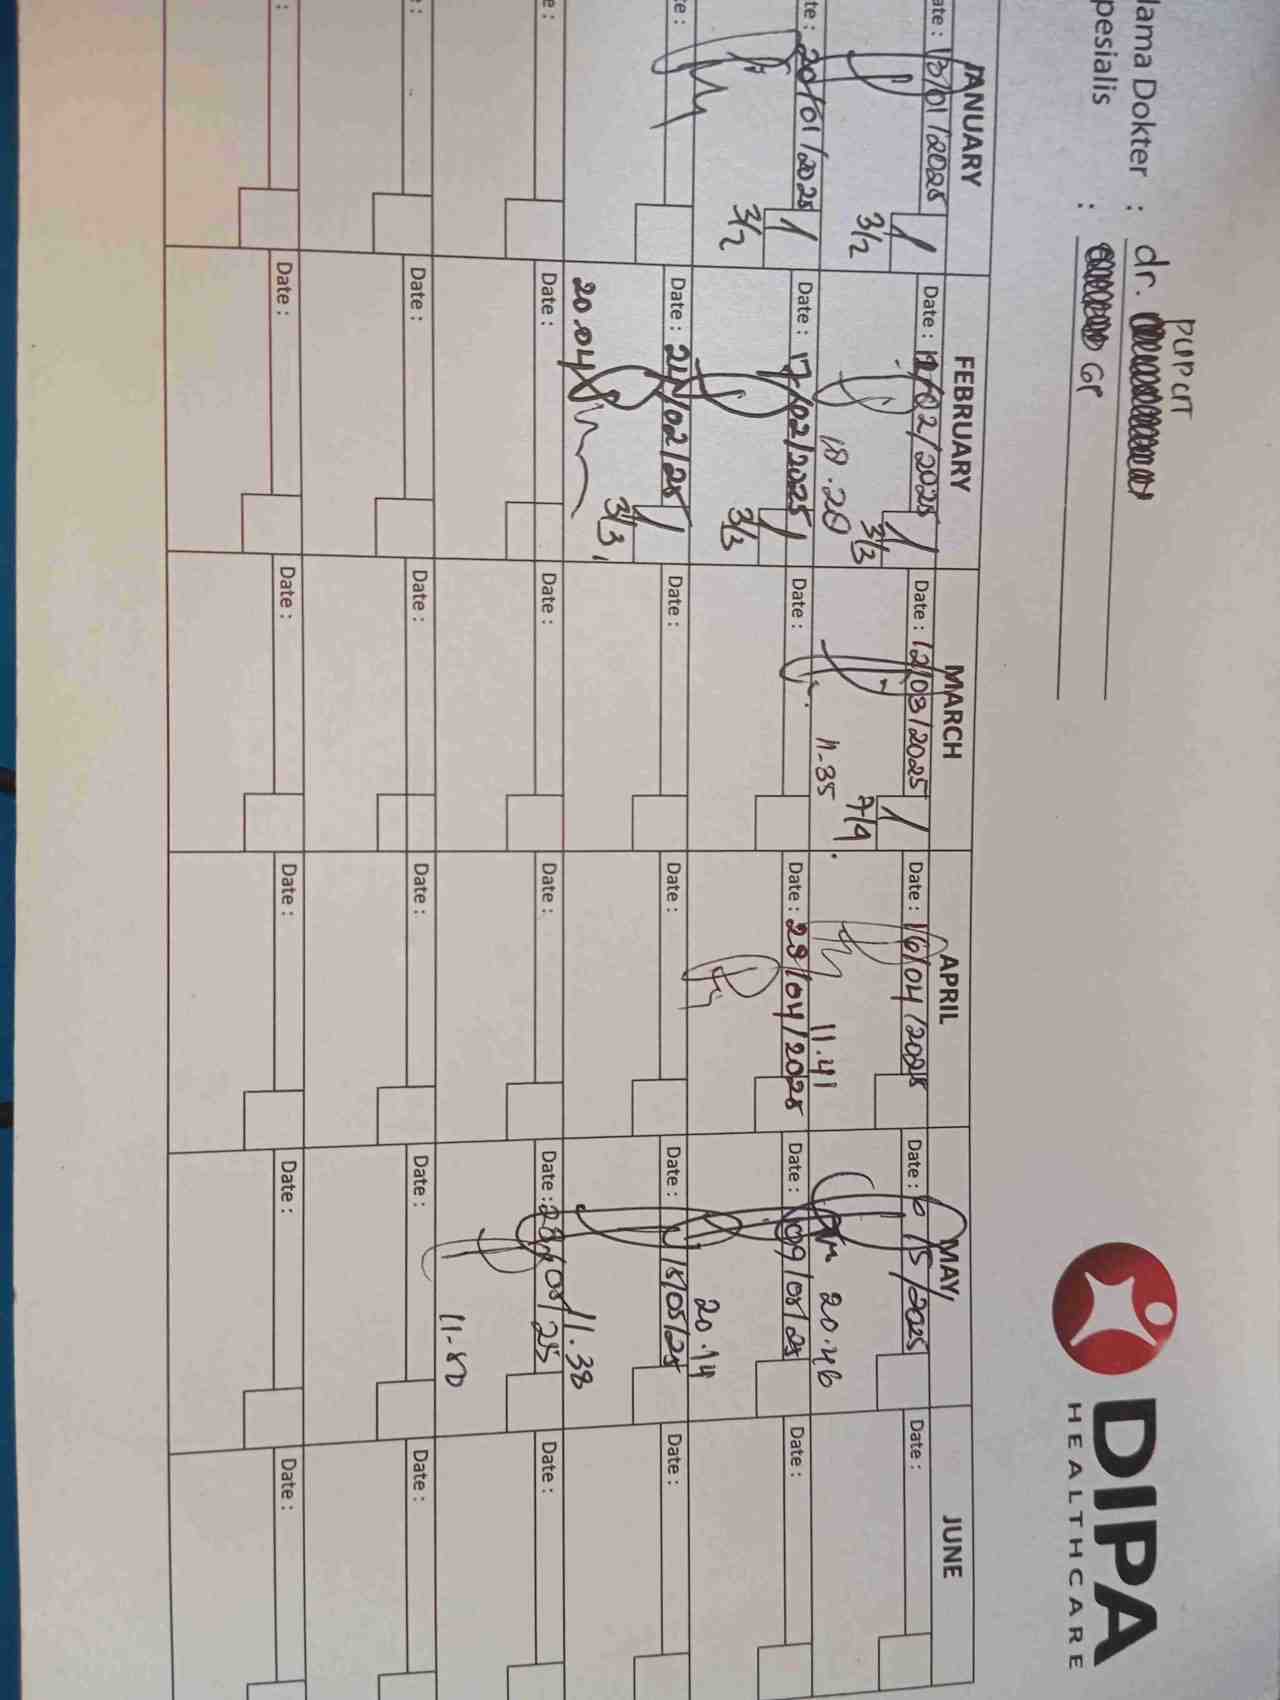 DIPA
HEALTHCARE
lama Dokter : dr. PUPCIT
pesialis : GP
JANUARY FEBRUARY MARCH APRIL MAY JUNE
ate : 13/01/2025 1 Date : 12/02/2025 1 Date : 12/03/2025 1 Date : 16/04/2025 Date : 6/5/2025 Date :
3/2 18.20 3/3 11-35 7/4 11.41 20.46
te : 20/01/2025 1 Date : 17/02/2025 1 Date : Date : 29/04/2025 Date : 09/05/25 Date :
3/2 3/3 20.14
te : Date : 24/02/25 1 Date : Date : Date : 15/05/25 Date :
20.04 3/3 11.38
e : Date : Date : Date : Date : 28/05/25 Date :
11-50
: Date : Date : Date : Date : Date :
: Date : Date : Date : Date : Date :